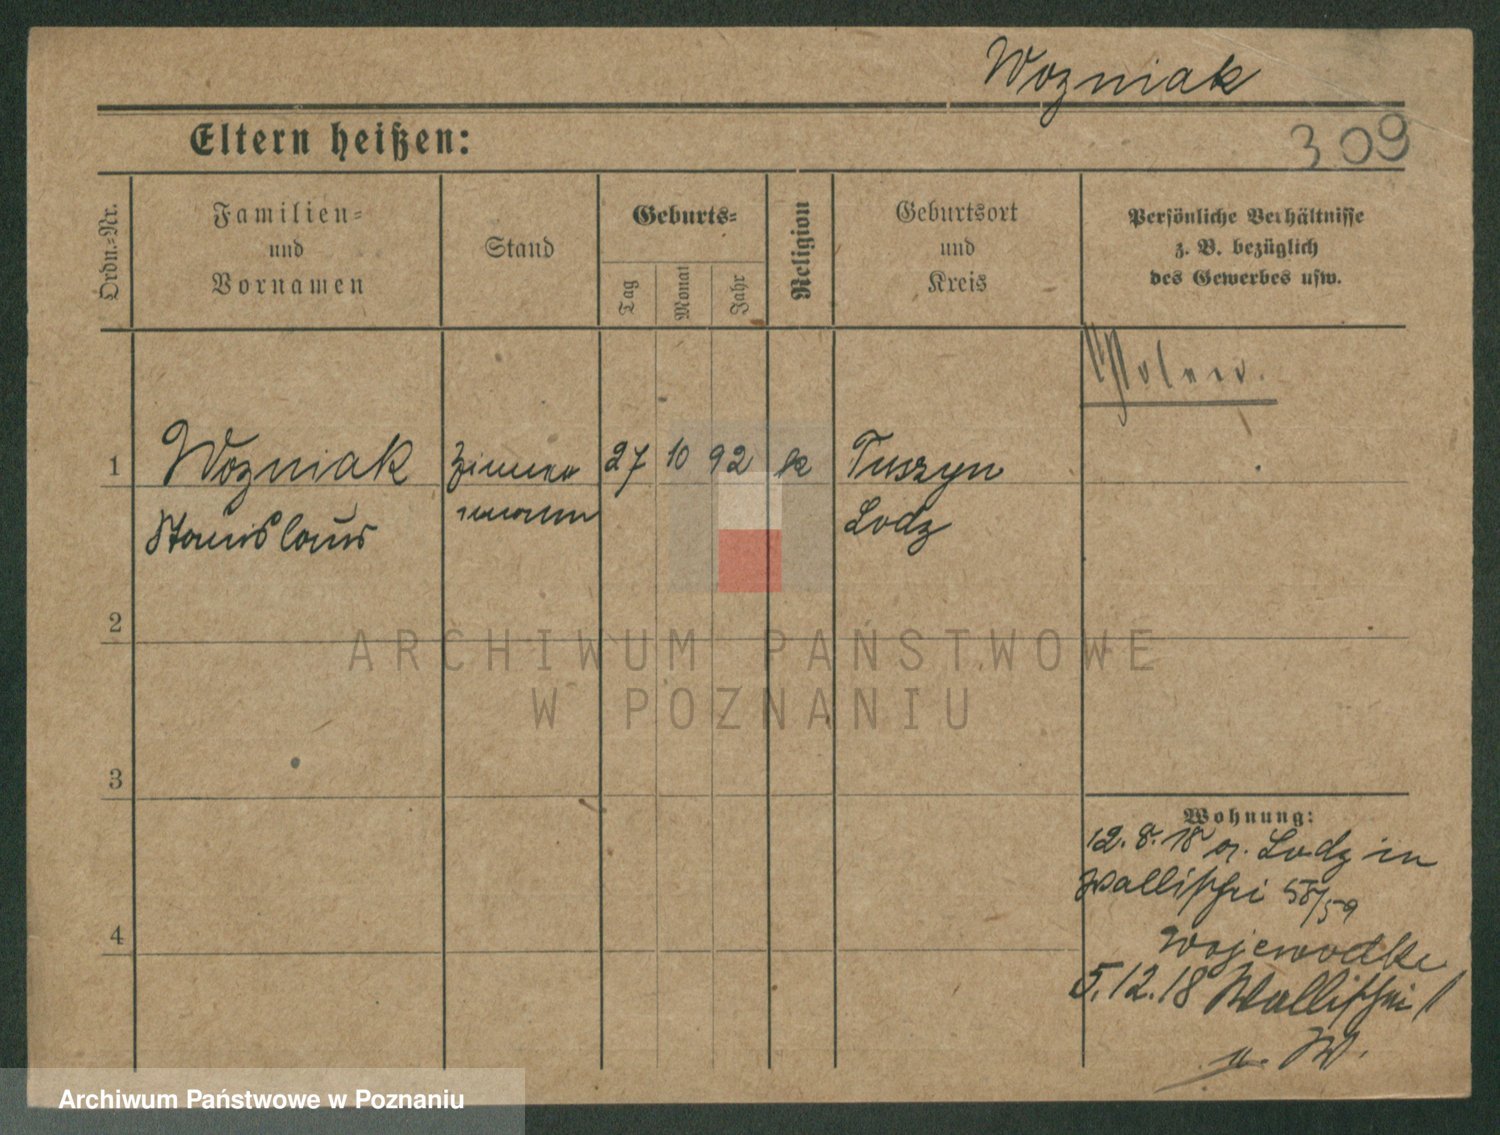 Wozniak
Eltern heißen:
309
Ordn.-Nr.
Familien-
und
Vornamen
Stand
Geburts-
Tag
Monat
Jahr
Religion
Geburtsort
und
Kreis
Persönliche Verhältnisse
z. B. bezüglich
des Gewerbes usw.
Polen.
1
Wozniak
Zimmer
27
10
92
Tuszyn
Stanislaus
mann
Lodz
2
ARCHIWUM PAŃSTWOWE
W POZNANIU
3
Wohnung:
12.8.18 v. Lodz in
Wallischei 58/59
Wojewodke
4
5.12.18 Wallischei
W.
Archiwum Państwowe w Poznaniu